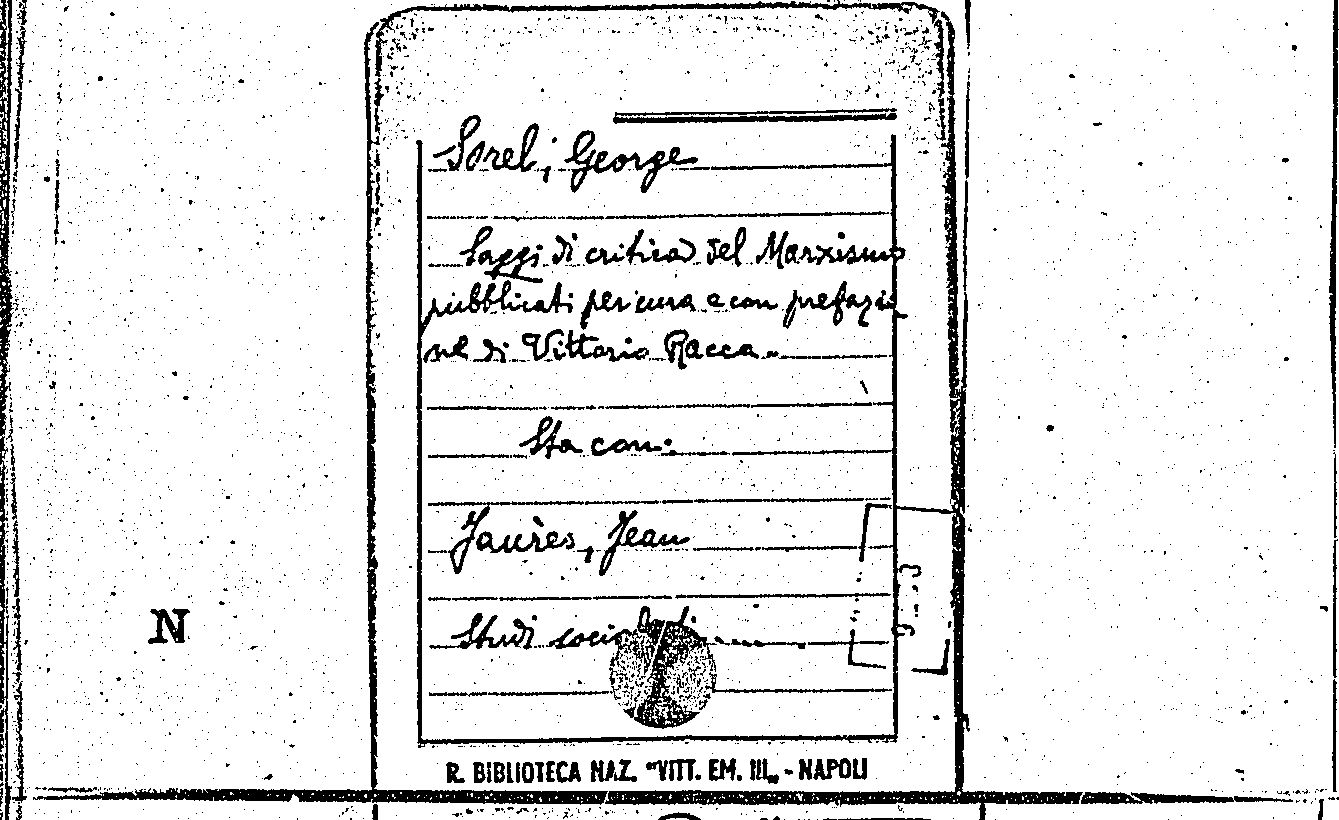 Sorel, George
Saggi di critica del Marxismo
pubblicati per cura e con prefazio
ne di Vittorio Racca.
Sta con:
Jaurès, Jean
N
Studi socialisti.....
R. BIBLIOTECA NAZ. "VITT. EM. III„ - NAPOLI